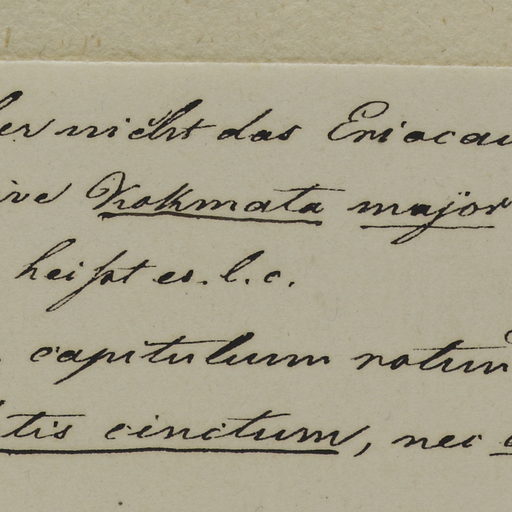 er nicht das Eriocau
ive Kokmata major
heißt es. l. c.
capitulum rotun
tis cinctum, nec